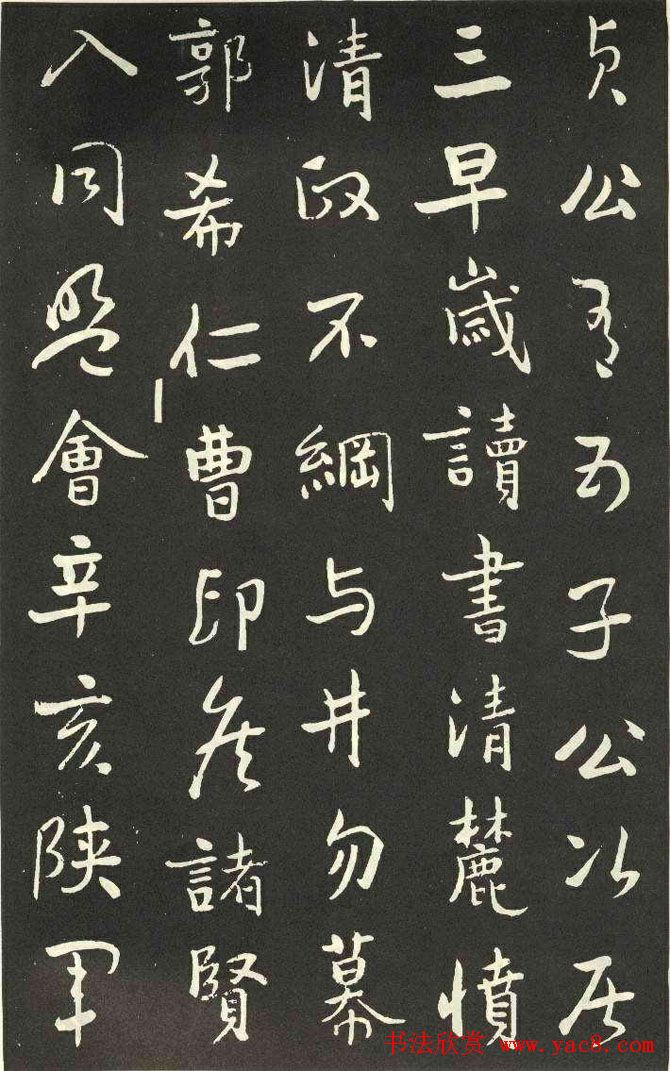 贞公有五子公次居
三早歲讀書清麓憤
清政不綱与井勿幕
郭希仁曹印侯諸賢
入同盟會辛亥陕軍
书法欣赏 www.yac8.com